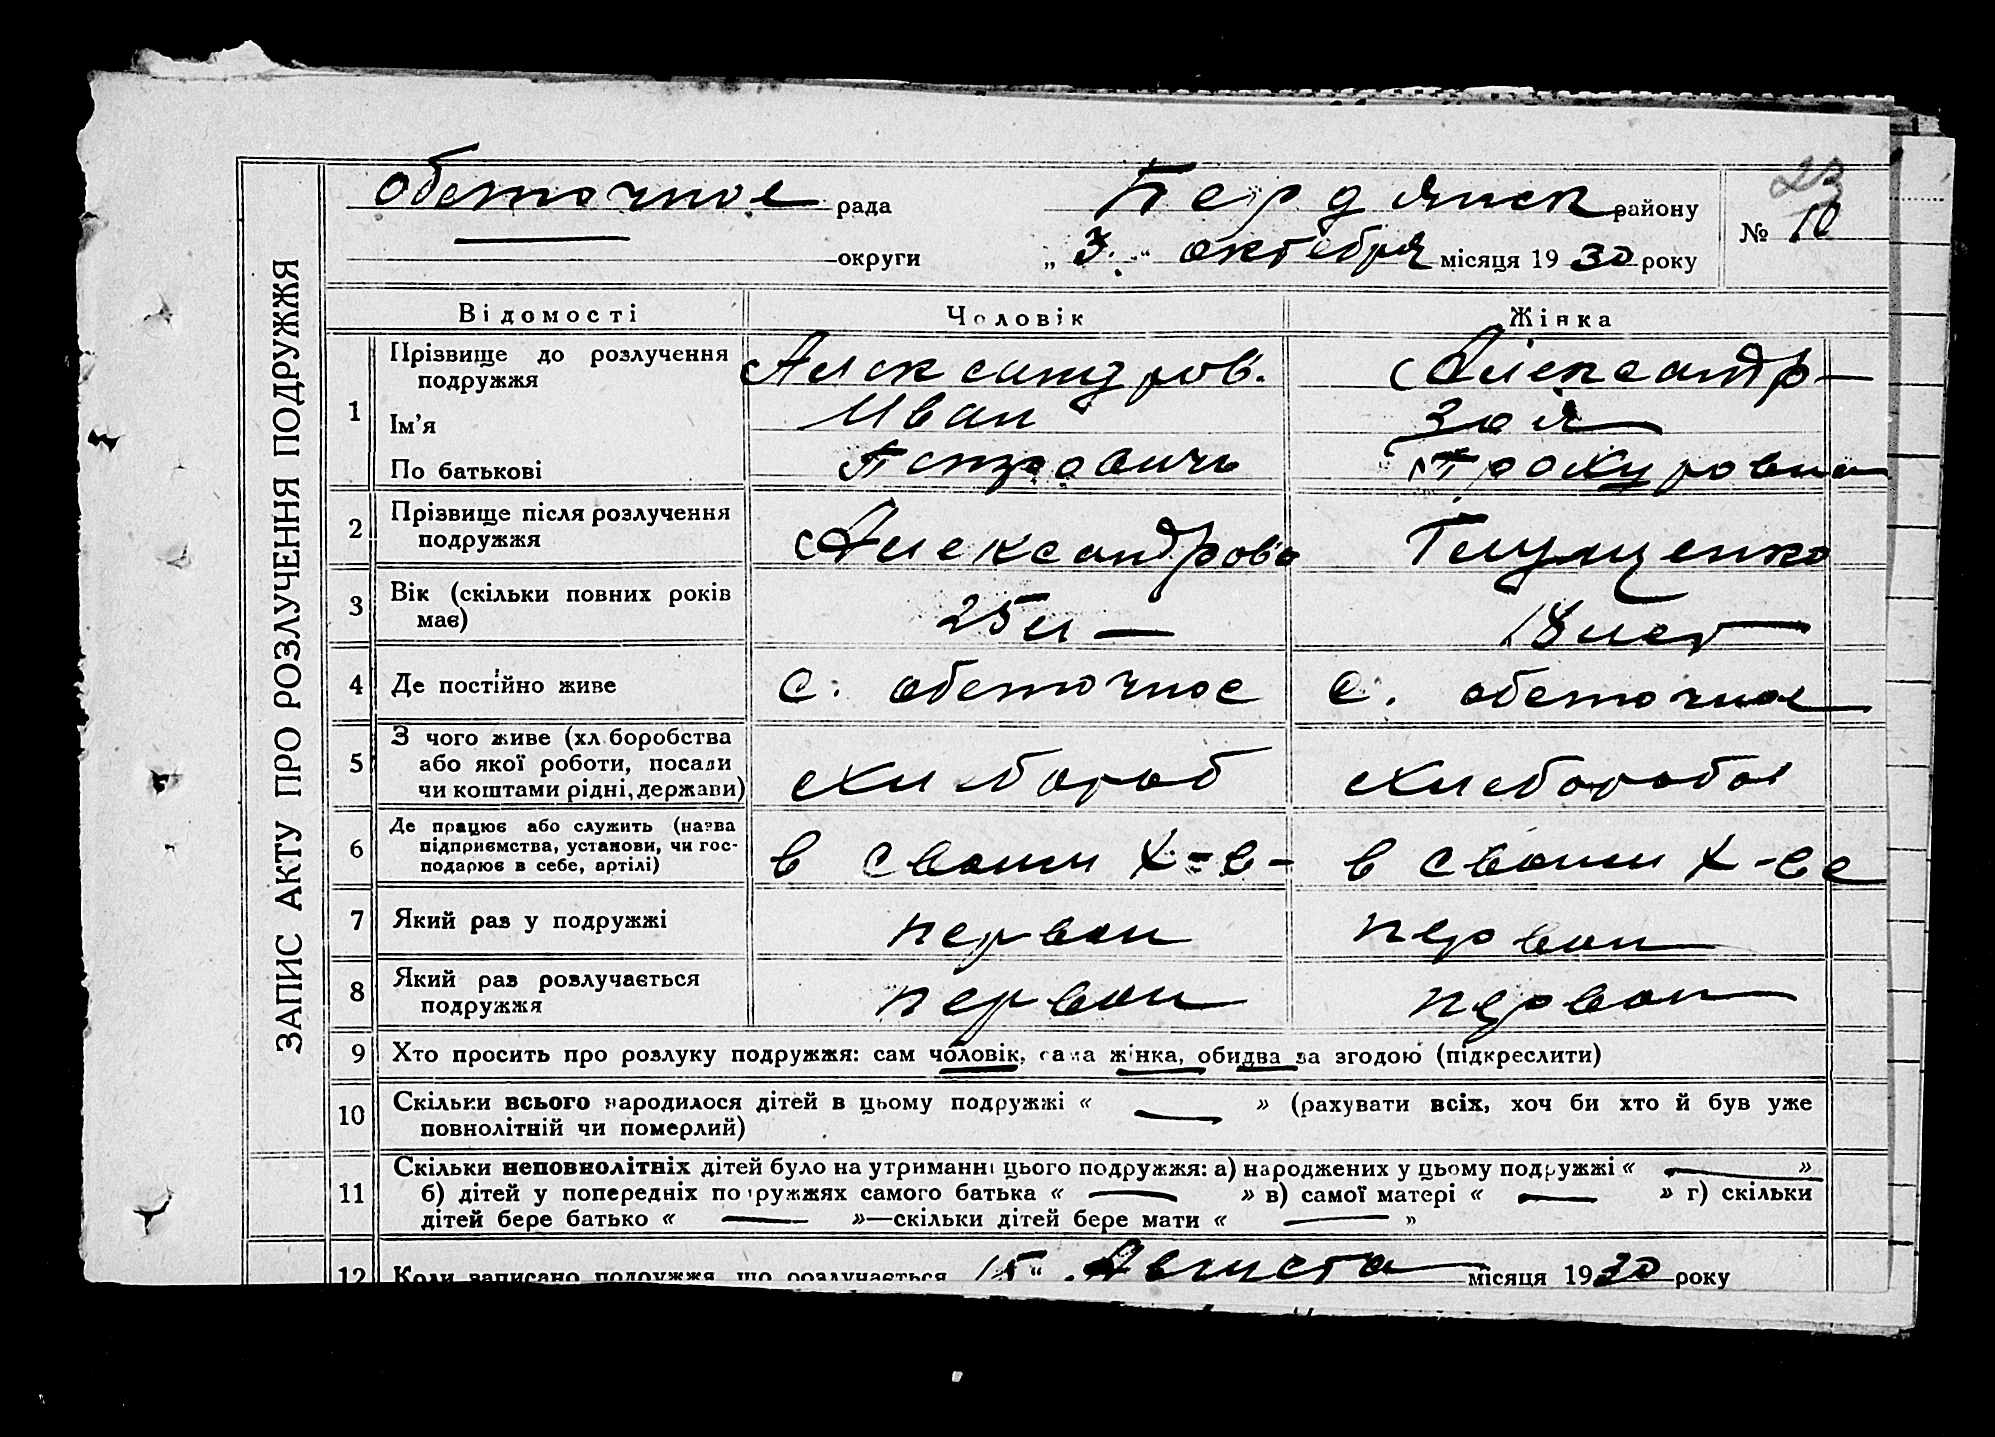 ЗАПИС АКТУ ПРО РОЗЛУЧЕННЯ ПОДРУЖЖЯ
Обеточное рада
Бердянск району
23
№ 10
округи
„ 3. “ октебря місяця 19 30 року
Відомості Чоловік Жінка
1 Прізвище до розлучення подружжя Александров. Александр—
Ім’я Иван Зоя
По батькові Петрович
2 Прізвище після розлучення подружжя Александрова Глущенко
3 Вік (скільки повних років має) 25 л — 18 лет
4 Де постійно живе С. обеточное С. обеточное
5 З чого живе (хл боробства або якої роботи, посади чи коштами рідні, держави) Хлебороб Хлебороба
6 Де працює або служить (назва підприємства, установи, чи господарює в себе, артілі) в своем х-в- в своем х-ве
7 Який раз у подружжі первой первой
8 Який раз розлучається подружжя первой первой
9 Хто просить про розлуку подружжя: сам чоловік, сама жінка, обидва за згодою (підкреслити)
10 Скільки всього народилося дітей в цьому подружжі « — » (рахувати всіх, хоч би хто й був уже
повнолітній чи померлий)
11 Скільки неповнолітніх дітей було на утриманні цього подружжя: а) народжених у цьому подружжі « — »
б) дітей у попередніх подружжях самого батька « — » в) самої матері « — » г) скільки
дітей бере батько « — »—скільки дітей бере мати « — »
12 Коли записано подружжя, що розлучається 15 “ Августа місяця 1930 року